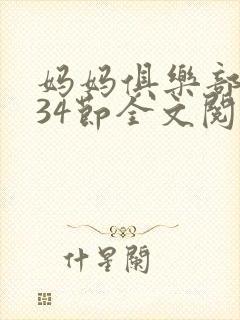 妈妈俱樂部
34節全文閱
什星闌